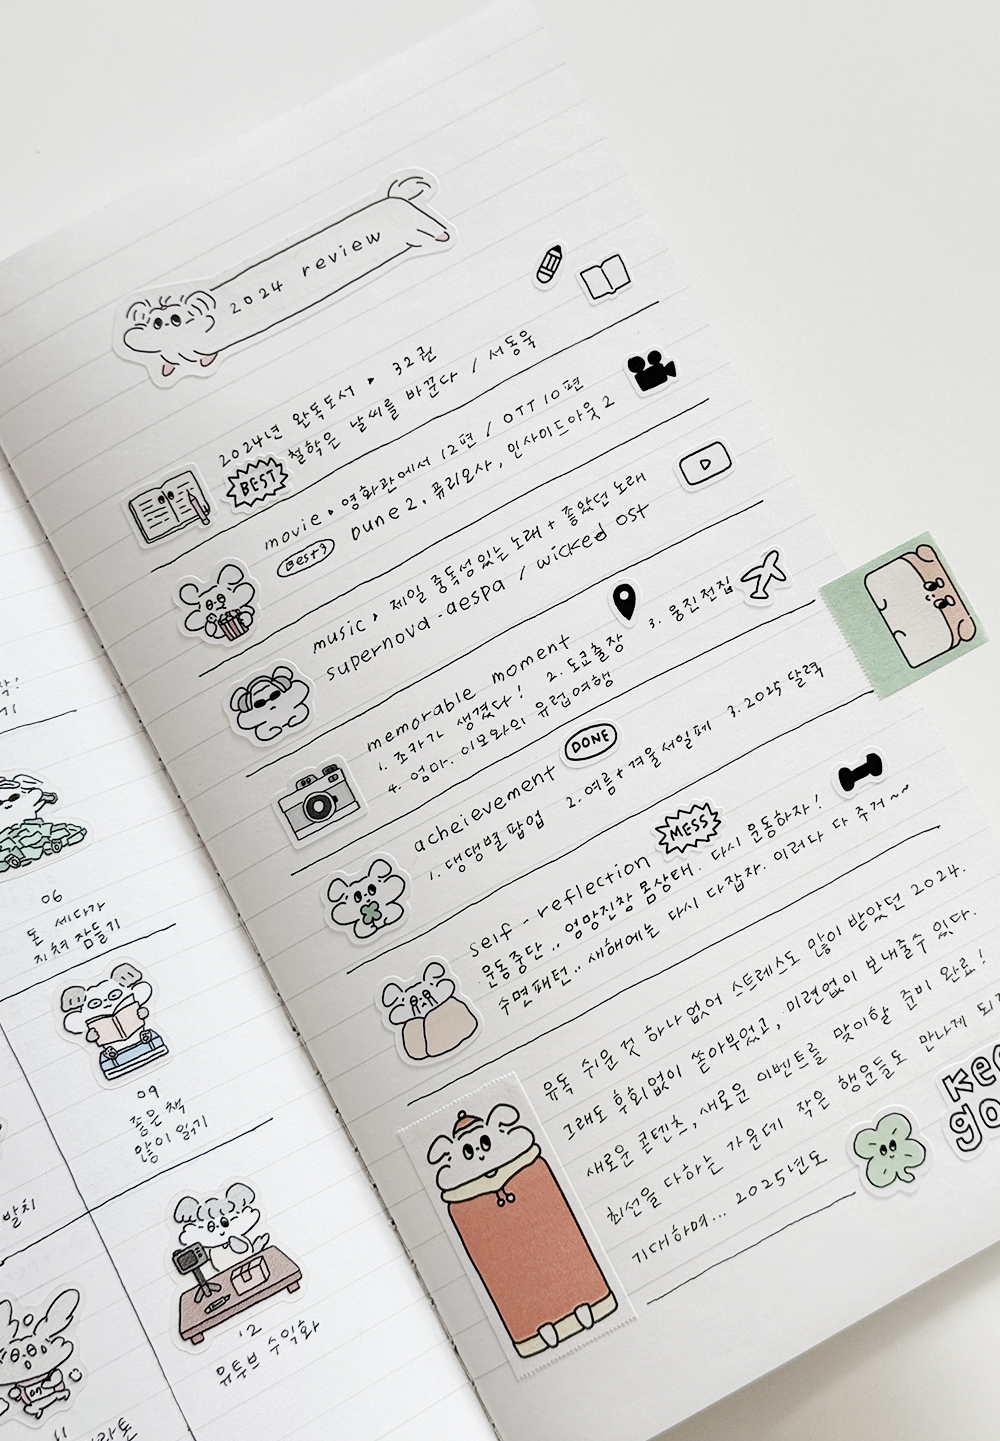 2024 review
2024년 완독도서 ▸ 32권
BEST 철학은 날씨를 바꾼다 / 서동욱
movie ▸ 영화관에서 12편 / OTT 10편
Best3 Dune 2. 퓨리오사, 인사이드아웃 2
music ▸ 제일 중독성있는 노래 + 좋았던 노래
supernova - aespa / wicked ost
memorable moment
1. 조카가 생겼다! 2. 도쿄출장 3. 웅진전집
4. 엄마. 이모와의 유럽여행
acheievement DONE
1. 댕댕별 팝업 2. 여름 + 겨울 서일페 3. 2025 달력
self - reflection MESS
운동중단.. 엉망진창 몸상태. 다시 운동하자!
수면패턴.. 새해에는 다시 다잡자. 이러다 다 죽거~~
유독 쉬운 것 하나 없어 스트레스도 많이 받았던 2024.
그래도 후회없이 쏟아부었고, 미련없이 보내줄수 있다.
새로운 콘텐츠, 새로운 이벤트를 맞이할 준비 완료!
최선을 다하는 가운데 작은 행운들도 만나게
기대하며... 2025년도
go
06
돈 세다가
지쳐 잠들기
09
좋은 책
많이 읽기
12
유튜브 수익화
발치